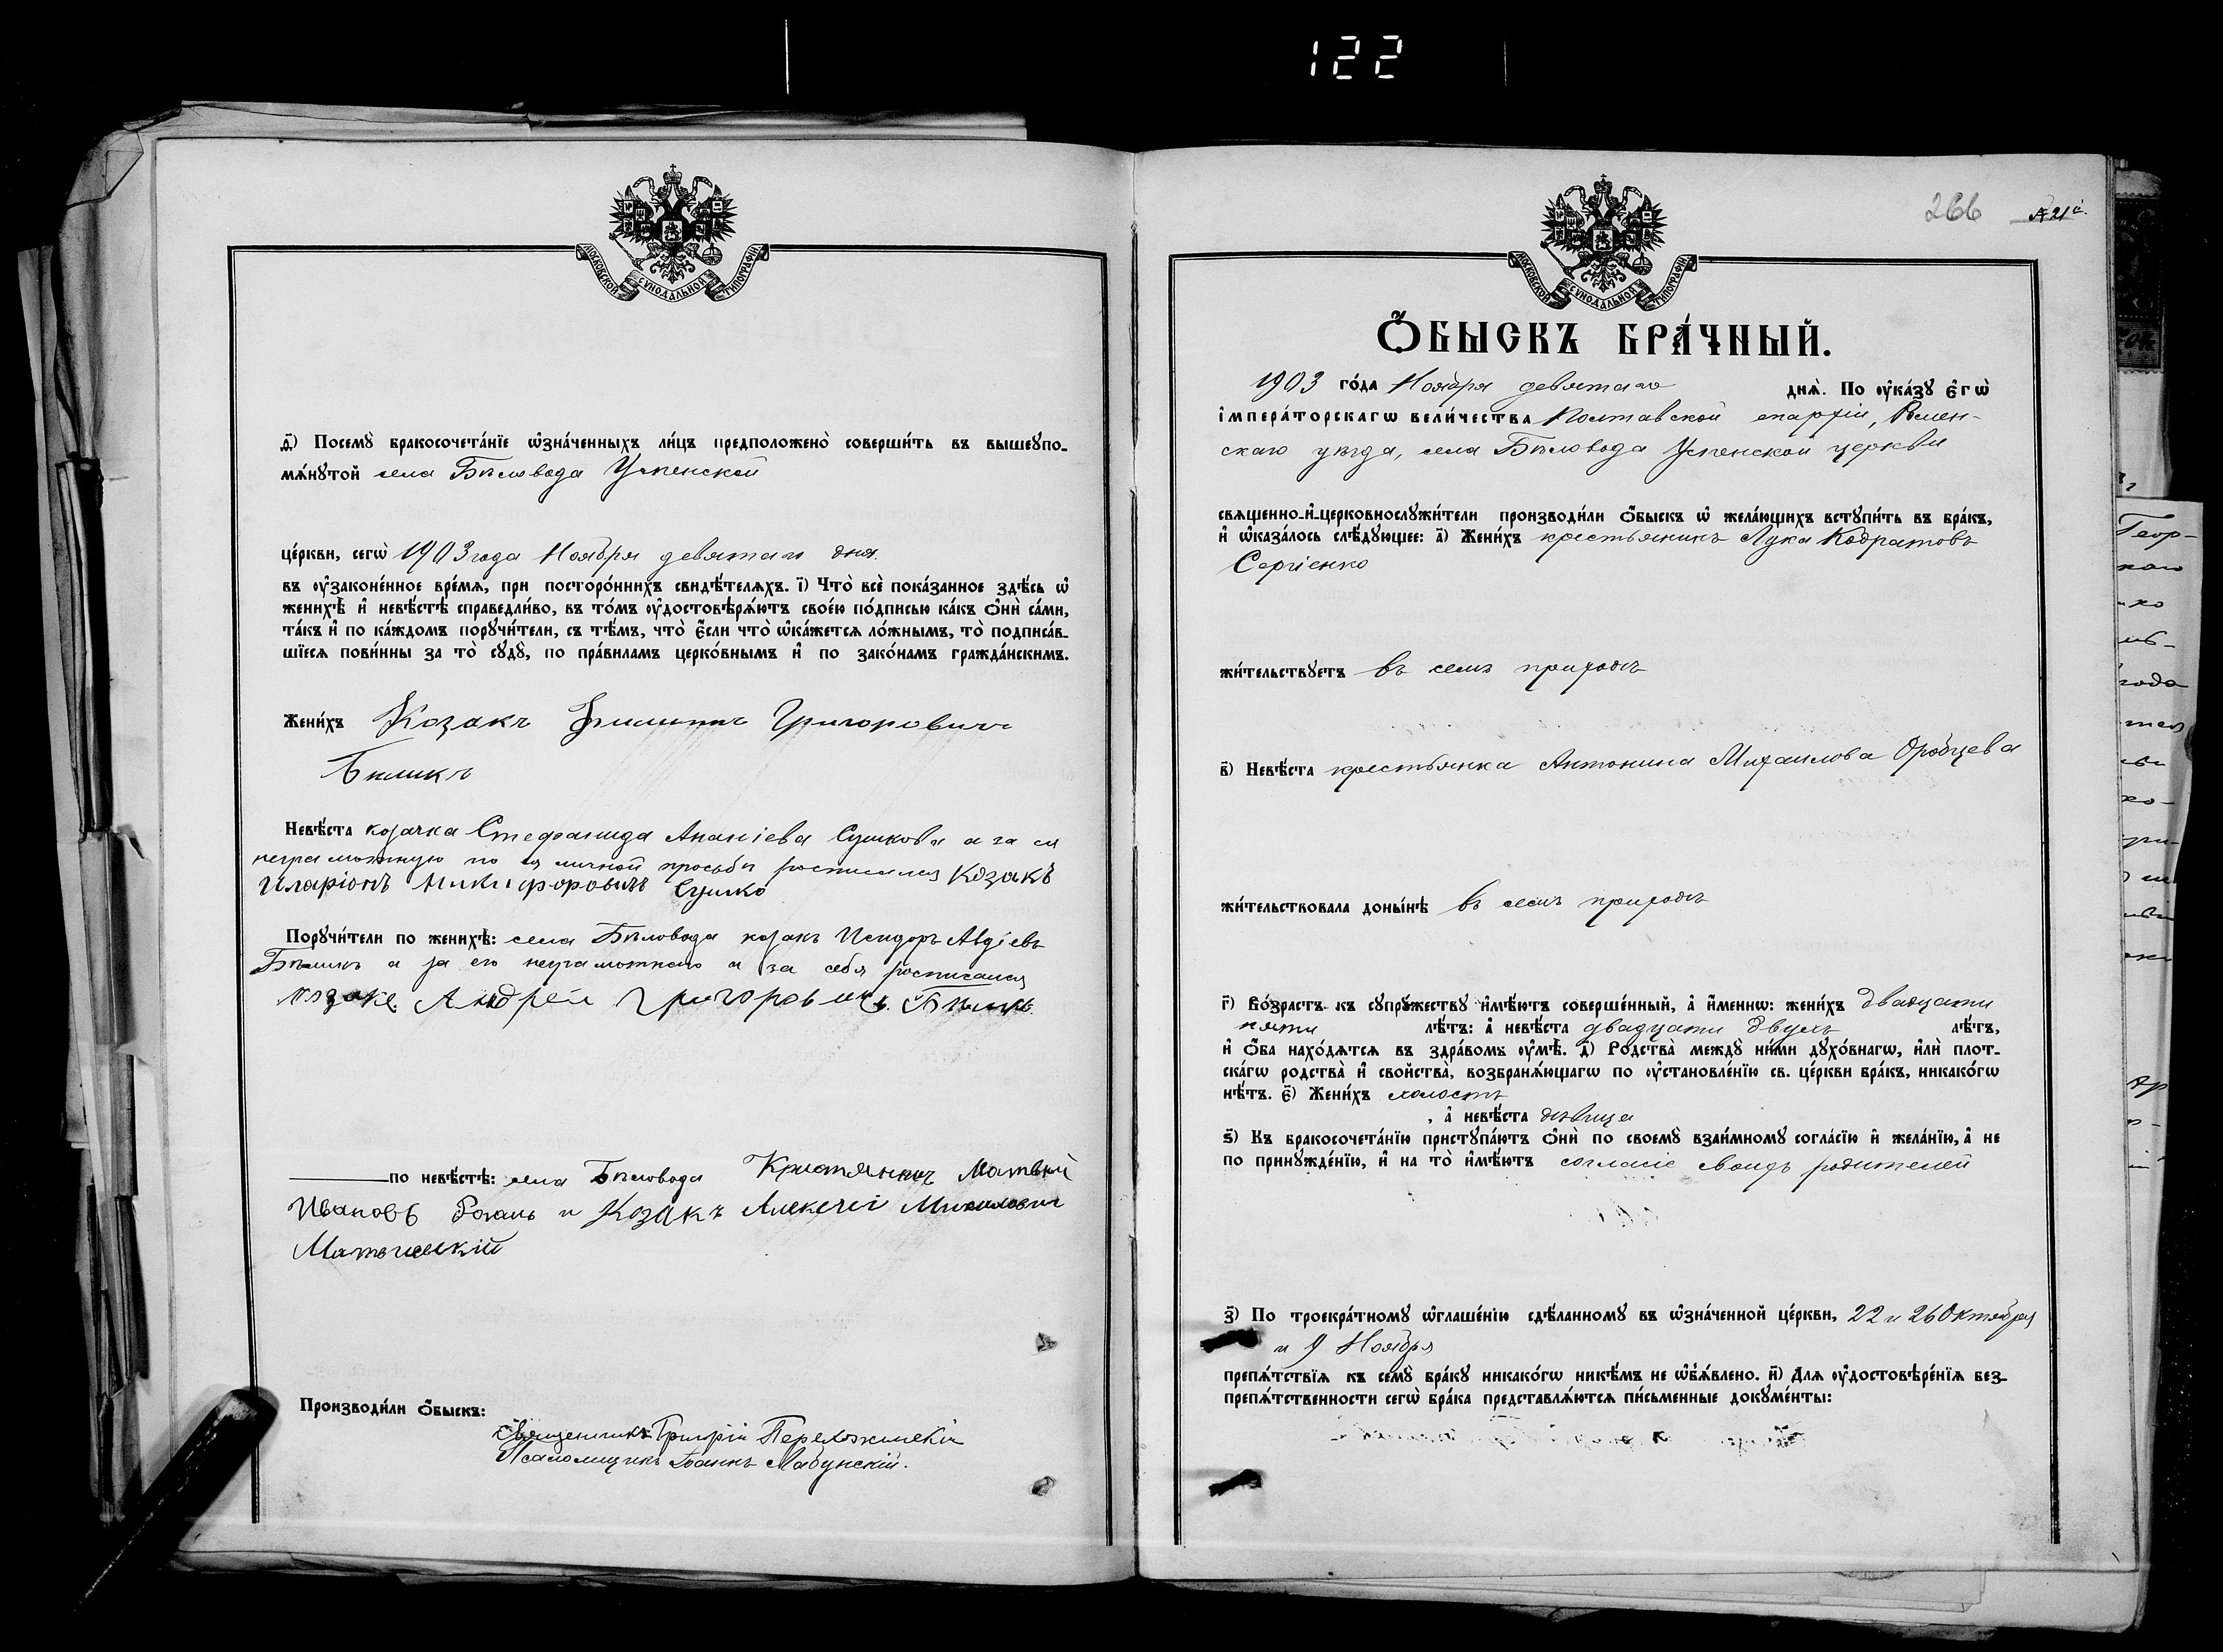 122
МОСКОВСКОЙ СУНОДАЛЬНОЙ ТИПОГРАФІИ
д҃і) Посемꙋ̀ бракосочета́нїе ѡ҆зна́ченныхъ ли́цъ предположено̀ соверши́ть въ вышеꙋпо-
мѧ́нꙋтой села Бѣловода Успенской
це́ркви, сегѡ̀ 1903 года Ноября девятаго дня.
въ ᲂу҆законе́нное вре́мѧ, при посторо́ннихъ свидѣ́телѧхъ. і҃) Что̀ всѐ пока́занное здѣ́сь ѡ҆
женихѣ̀ и҆ невѣ́стѣ справедли́во, въ то́мъ ᲂу҆достовѣрѧ́ютъ свое́ю по́дписью ка́къ ѻ҆нѝ са́ми,
та́къ и҆ по ка́ждомъ порꙋчи́тели, съ тѣ́мъ, что̀ є҆́сли что̀ ѡ҆ка́жетсѧ ло́жнымъ, то̀ подписа́в-
шїесѧ пови́нны за то̀ сꙋдꙋ̀, по пра́виламъ церко́внымъ и҆ по зако́намъ гражда́нскимъ.
Жени́хъ Козакъ Филиппъ Григоровичъ
Биликъ
Невѣ́ста козачка Стефанида Ананіева Сушкова а за ея
неграмотную по ея личной просьбѣ росписался Козакъ
Иларіонъ Никифоровичъ Сушко
Порꙋчи́тели по женихѣ̀: села Бѣловода козакъ Исидоръ Авдіевъ
Бѣликъ а за его неграмотнаго и за себя росписался
козакъ Андрей Григоровичъ Биликъ
по невѣ́стѣ: села Бѣловода Кристянинъ Матвѣй
Ивановъ и Козакъ Алексѣй Михаиловичъ
Производи́ли ѻ҆́быскъ:
Священникъ Григорій
Псаломщикъ Іоаннъ Лабунскій.
266 № 21й.
МОСКОВСКОЙ СУНОДАЛЬНОЙ ТИПОГРАФІИ
Ѻ҆́БЫСКЪ БРА́ЧНЫЙ.
1903 го́да Ноября девятаго днѧ̀. По ᲂу҆ка́зꙋ є҆гѡ̀
і҆мпера́торскагѡ вели́чества Полтавской епархіи, Ромен-
скаго уѣзда, села Бѣловода Успенской церкви
свѧщенно-и҆-церковнослꙋжи́тели производи́ли ѻ҆́быскъ ѡ҆ жела́ющихъ встꙋпи́ть въ бра́къ,
и҆ ѡ҆каза́лось слѣ́дꙋющее: а҃) Жени́хъ крестьянинъ Лука Кодратовъ
Сергіенко
жи́тельствꙋетъ въ семъ приходѣ
в҃) Невѣ́ста крестьянка Антонина Михаилова Оробцева
жи́тельствовала доны́нѣ въ семъ приходѣ
г҃) Во́зрастъ къ сꙋпрꙋ́жествꙋ и҆мѣ́ютъ соверше́нный, а҆ и҆́меннѡ: жени́хъ двадцати
пяти лѣ́тъ: а҆ невѣ́ста двадцати двухъ лѣ́тъ,
и҆ ѻ҆́ба нахо́дѧтсѧ въ здра́вомъ ᲂу҆мѣ̀. д҃) Родства̀ междꙋ̀ ни́ми дꙋхо́внагѡ, и҆лѝ плот-
ска́гѡ родства̀ и҆ свойства̀, возбранѧ́ющагѡ по ᲂу҆становле́нїю св. це́ркви бра́къ, никако́гѡ
нѣ́тъ. є҃) Жени́хъ холостъ
, а҆ невѣ́ста дѣвица
ѕ҃) Къ бракосочета́нїю пристꙋпа́ютъ ѻ҆нѝ по своемꙋ̀ взаи́мномꙋ согла́сїю и҆ жела́нїю, а҆ не
по принꙋжде́нїю, и҆ на то̀ и҆мѣ́ютъ согласіе своихъ родителей
з҃) По троекра́тномꙋ ѡ҆глаше́нїю сдѣ́ланномꙋ въ ѡ҆зна́ченной це́ркви, 22 и 26 Октября
и 9 Ноября
препѧ́тствїѧ къ семꙋ̀ бра́кꙋ никако́гѡ никѣ́мъ не ѡ҆б̾ѧ́влено. и҃) Длѧ ᲂу҆достовѣре́нїѧ без-
препѧ́тственности сегѡ̀ бра́ка представлѧ́ютсѧ пи́сьменные докꙋме́нты:
Геор-